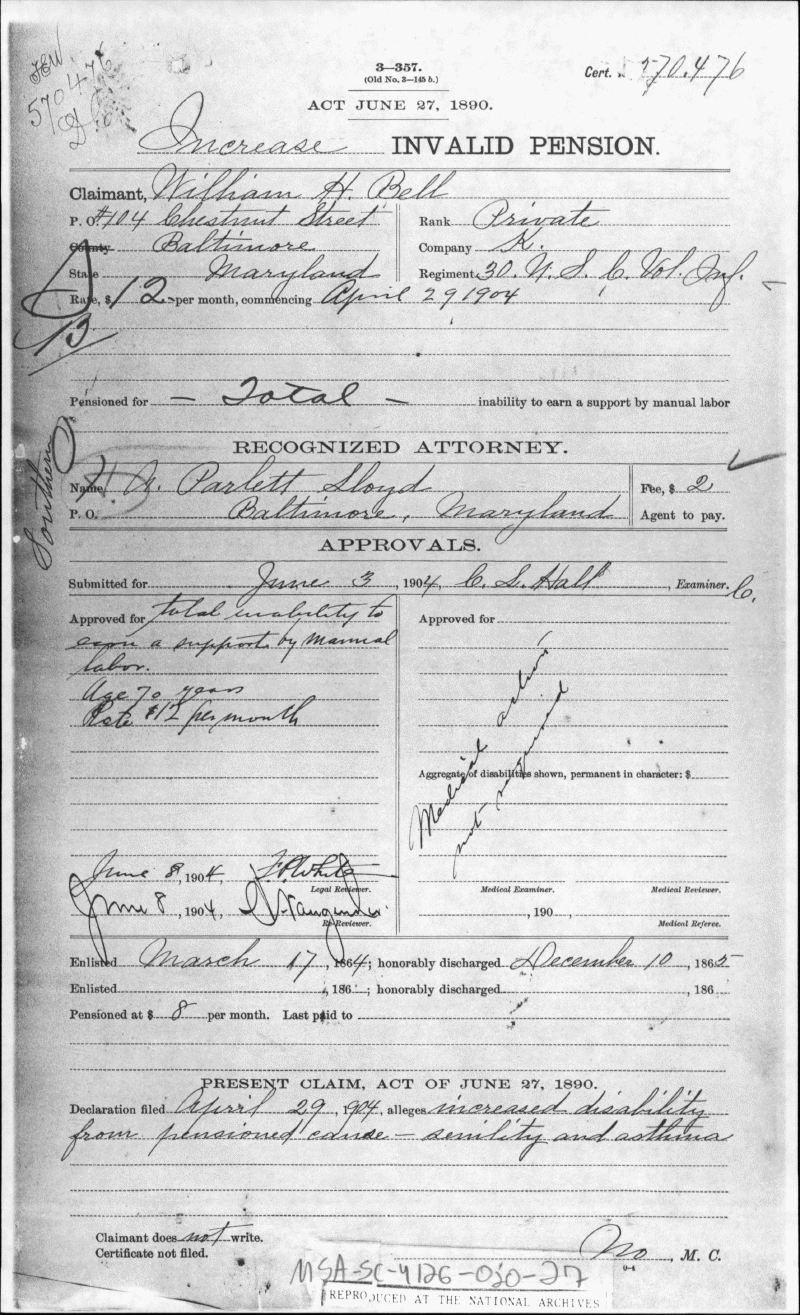 JEW
570476
3—357.
(Old No. 3—145 b.)
Cert. 570.476
ACT JUNE 27, 1890.
Increase INVALID PENSION.
Claimant, William H. Bell
P. O. #704 Chestnut Street
Rank Private
County Baltimore
Company K.
State Maryland
Regiment 30. U. S. C. Vol. Inf.
Rate, $12 per month, commencing April 29 1904
13
Pensioned for — Total — inability to earn a support by manual labor
Southern
RECOGNIZED ATTORNEY.
Name, Parlett Lloyd
Fee, $ 2
P. O. Baltimore, Maryland
Agent to pay.
APPROVALS.
Submitted for June 3, 1904, C. S. Hall, Examiner.
Approved for total inability to
earn a support by manual
labor.
Age 70 years
Rate $12 per month
Approved for
Medical action
not required
Aggregate of disabilities shown, permanent in character: $
June 8, 1904, F. P. White
Legal Reviewer.
Medical Examiner.
Medical Reviewer.
June 8, 1904,
Re-Reviewer.
, 190
Medical Referee.
Enlisted March 17, 1864; honorably discharged December 10, 1865
Enlisted , 186 ; honorably discharged , 186
Pensioned at $ 8 per month. Last paid to
PRESENT CLAIM, ACT OF JUNE 27, 1890.
Declaration filed April 29, 1904, alleges increased disability
from pensioned cause — senility and asthma
Claimant does not write.
Certificate not filed.
No, M. C.
0-4
MSA-SC-4126-030-27
REPRODUCED AT THE NATIONAL ARCHIVES